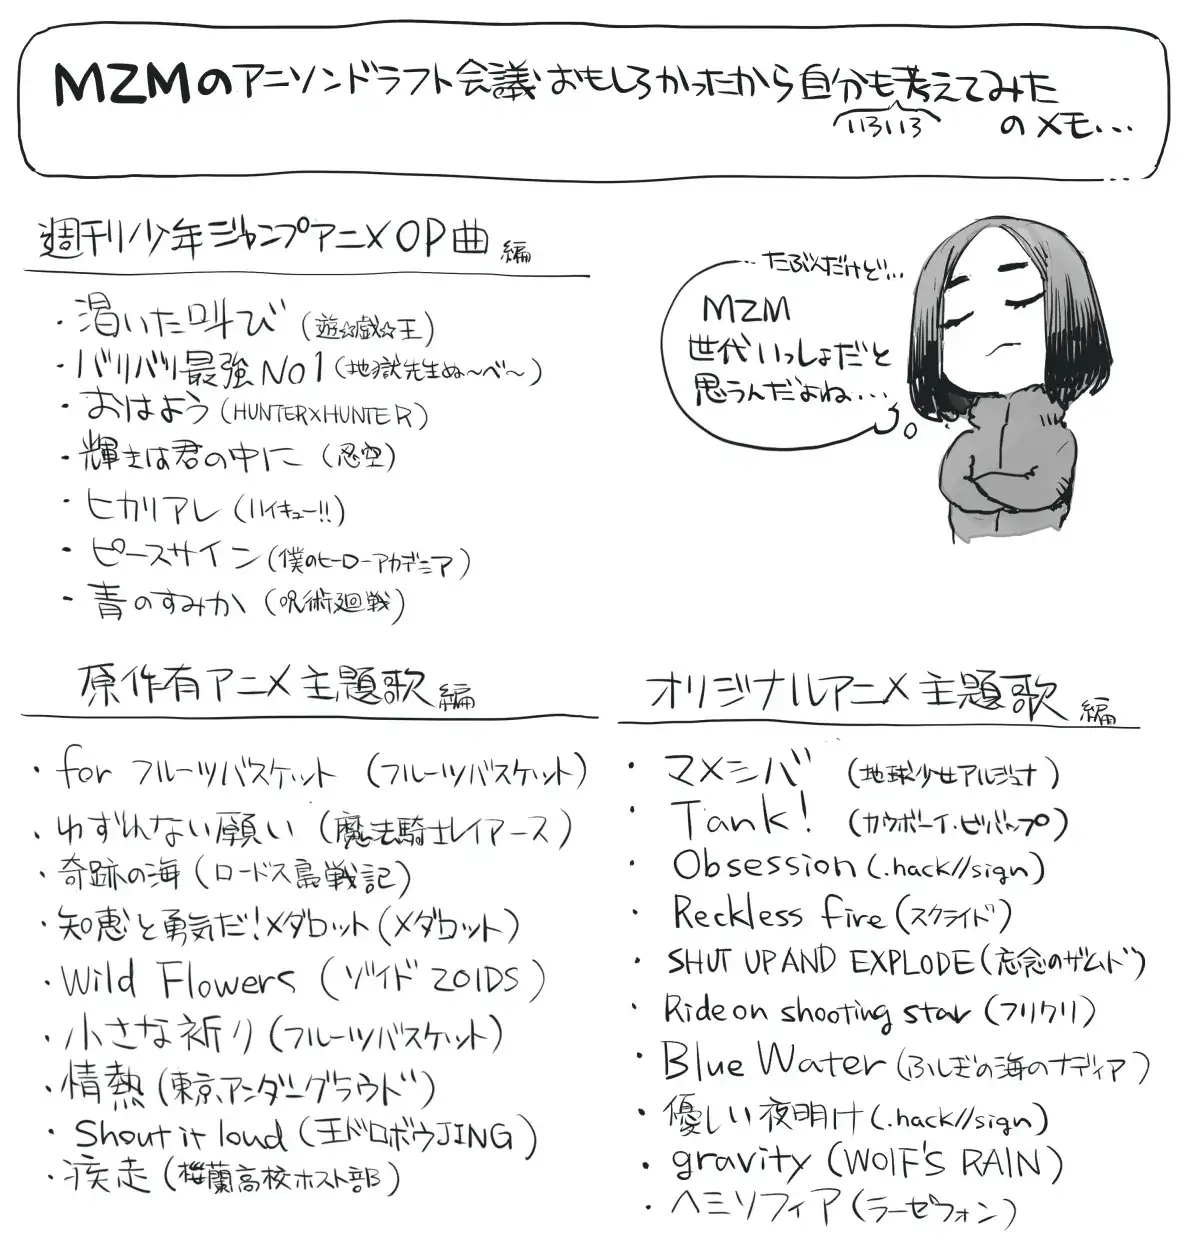 MZMのアニソンドラフト会議おもしろかったから自分も考えてみた
いろいろ
のメモ...
週刊少年ジャンプアニメOP曲編
・渇いた叫び(遊☆戯☆王)
・バリバリ最強No1(地獄先生ぬ〜べ〜)
・おはよう(HUNTER×HUNTER)
・輝きは君の中に(忍空)
・ヒカリアレ(ハイキュー!!)
・ピースサイン(僕のヒーローアカデミア)
・青のすみか(呪術廻戦)
たぶんだけど...
MZM
世代いっしょだと
思うんだよね...
原作有アニメ主題歌編
・for フルーツバスケット(フルーツバスケット)
・ゆずれない願い(魔法騎士レイアース)
・奇跡の海(ロードス島戦記)
・知恵と勇気だ!メダロット(メダロット)
・Wild Flowers(ゾイド ZOIDS)
・小さな祈り(フルーツバスケット)
・情熱(東京アンダーグラウンド)
・Shout it loud(王ドロボウJING)
・疾走(桜蘭高校ホスト部)
オリジナルアニメ主題歌編
・マメシバ(地球少女アルジュナ)
・Tank!(カウボーイ・ビバップ)
・Obsession(.hack//sign)
・Reckless fire(スクライド)
・SHUT UP AND EXPLODE(忘念のザムド)
・Ride on shooting star(フリクリ)
・Blue Water(ふしぎの海のナディア)
・優しい夜明け(.hack//sign)
・gravity(WOlF'S RAIN)
・ヘミソフィア(ラーゼフォン)